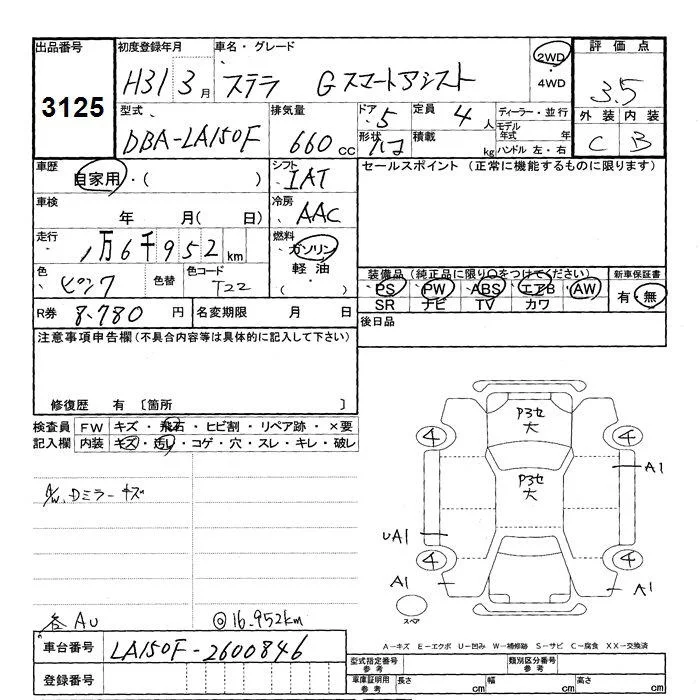 出品番号 初度登録年月 車名・グレード 評価点
3125 H31 3月 ステラ Gスマートアシスト 2WD 4WD 3.5
型式 排気量 ドア 定員 ディーラー・並行 外装 内装
DBA-LA150F 660cc 5 4人 モデル年式 年 C B
形状 ハコ 積載 kg ハンドル 左・右
車歴 自家用・( ) シフト IAT セールスポイント (正常に機能するものに限ります)
車検 年 月( 日) 冷房 AAC
走行 1万6千952km 燃料 ガソリン 軽油 ( )
色 ピンク 色替 色コード T22
装備品(純正品に限り○をつけてください) 新車保証書
PS PW ABS エアB AW 有・無
SR ナビ TV カワ
R券 8.780円 名変期限 月 日 後日品
注意事項申告欄(不具合内容等は具体的に記入して下さい)
修復歴 有 〔箇所 〕
検査員 FW キズ・飛石・ヒビ割・リペア跡・×要
記入欄 内装 キズ・汚レ・コゲ・穴・スレ・キレ・破レ
A/W、Dミラーキズ
各AU ◎16.952km
P3セ
大
4 4
A1
P3セ
大
UA1
4 4
A1 A1
スペア
A-キズ E-エクボ U-凹み W-補修跡 S-サビ C-腐食 XX-交換済
車台番号 LA150F-2600846
登録番号
型式指定番号 参考 類別区分番号 参考
車庫証明用 参考 長さ cm 幅 cm 高さ cm